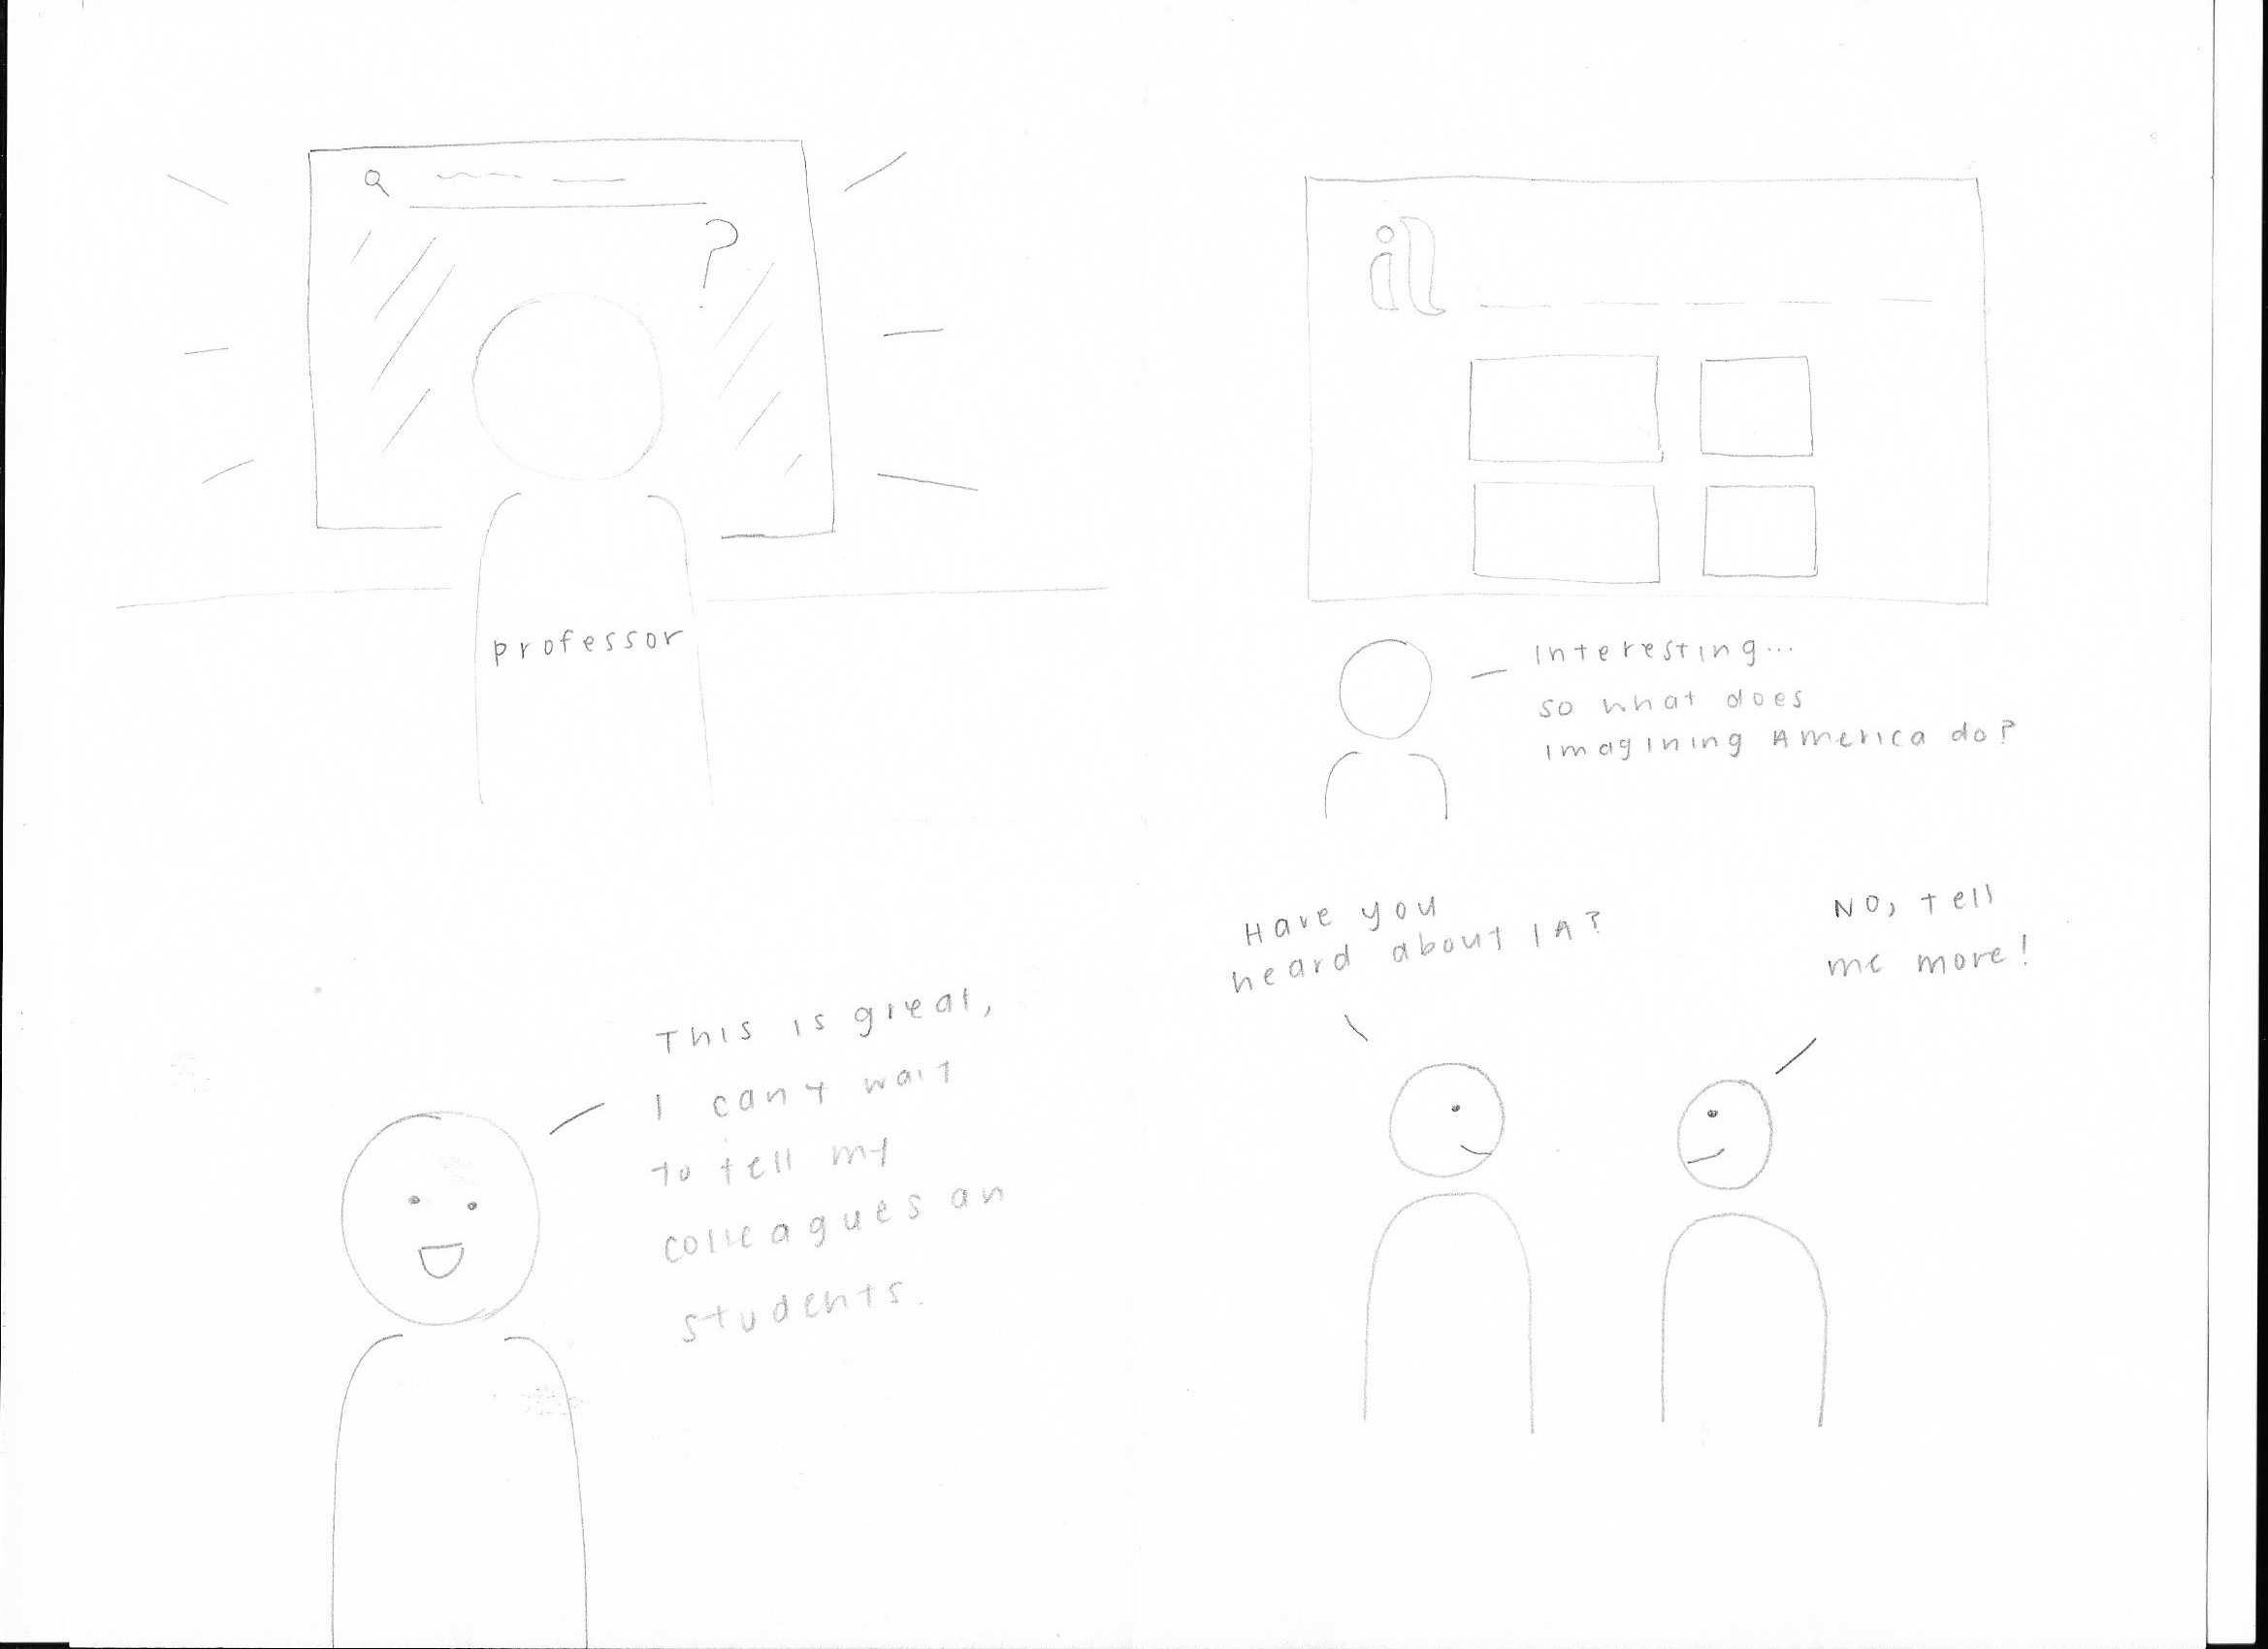 ?
professor
il
Interesting...
so what does
imagining America do?
This is great,
I can't wait
to tell my
colleagues an
students.
Have you
heard about IA?
NO, tell
me more!